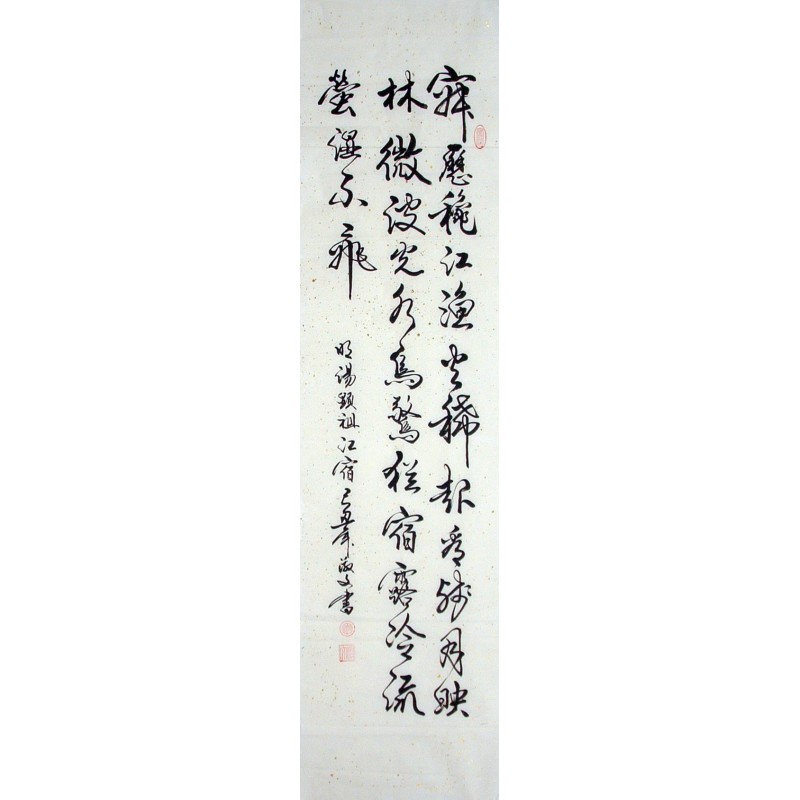 寂歷穐江漁火稀起看残月映
林微波光水鳥驚猶宿露冷流
螢湿不飛
明湯顯祖江宿己丑年文書